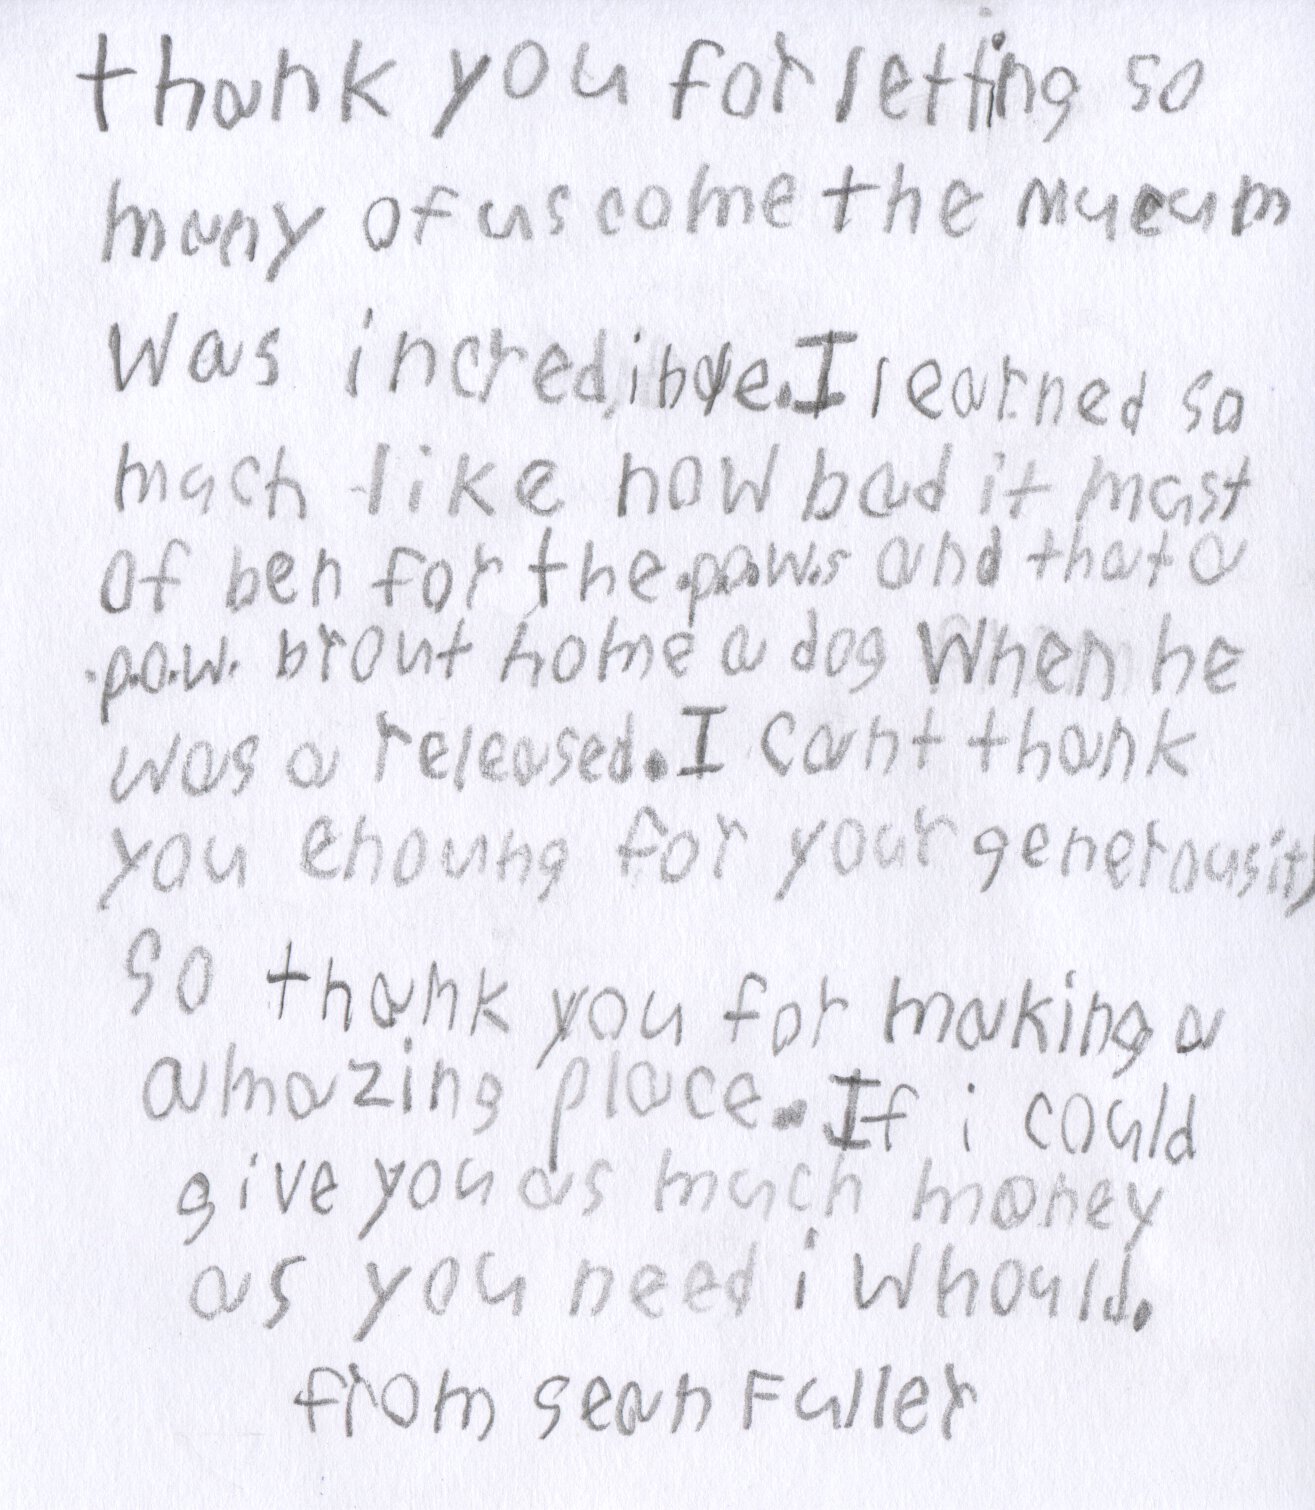 thank you for letting so
many of us come the mueum
was incredible. I learned so
much like how bad it must
of ben for the .p.o.w.s and that a
.p.o.w. brout home a dog when he
was a released. I cant thank
you enoung for your generousity
so thank you for making a
amazing place. If i could
give you as much money
as you need i whould.
from sean Fuller